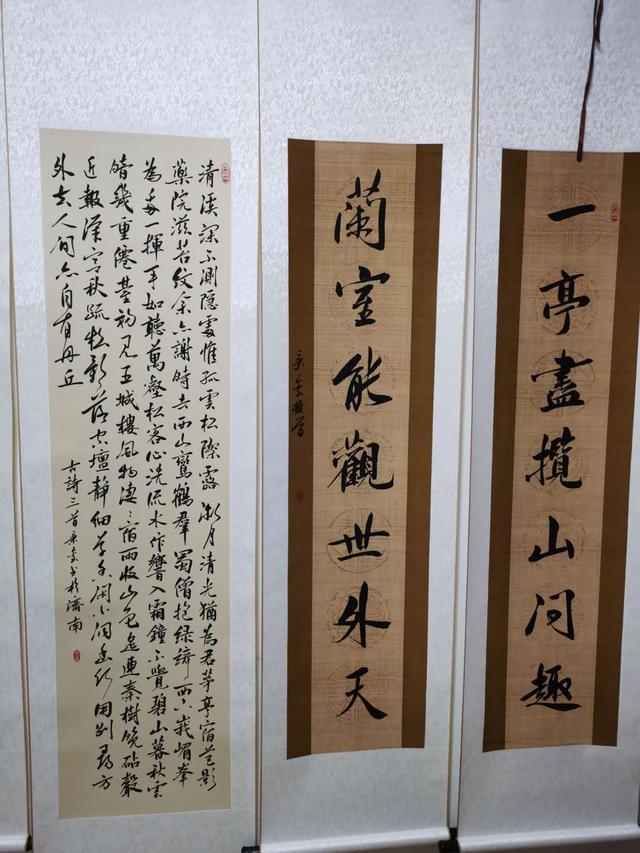 一亭盡攬山间趣
蘭室能觀世外天
清溪深不測隱處惟孤雲松際露微月清光猶為君茅亭宿花影
藥院滋苔紋余亦謝時去西山鸞鶴群蜀僧抱綠綺西下峨嵋峯
為我一揮手如聽萬壑松客心洗流水響入霜鐘不覺碧山暮秋雲
暗幾重僊臺初見五城樓風物淒〻宿雨收山色遙連秦樹晚砧聲
近報漢宮秋疏松影落空壇靜細草香闲小洞幽何用别尋方
外去人间亦自有丹丘
古詩三首書於濟南